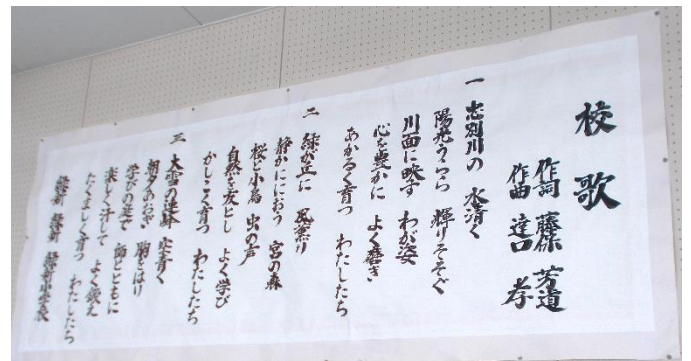 校歌
作詞 藤保 芳道
作曲 達口 孝
一 忠別川の 水清く
陽光うらら 輝りそそぐ
川面に映す わが姿
心を豊かに よく磨き
あかるく育つ わたしたち
二 緑が丘に 風薫り
静かににおう 宮の森
桜に小鳥 虫の声
自然を友とし よく学び
かしこく育つ わたしたち
三 大雪の連峰 空青く
朝夕あおぎ 胸をはり
学びの庭で 師とともに
楽しく汗して よく鍛え
たくましく育つ わたしたち
緑新 緑新 緑新小学校